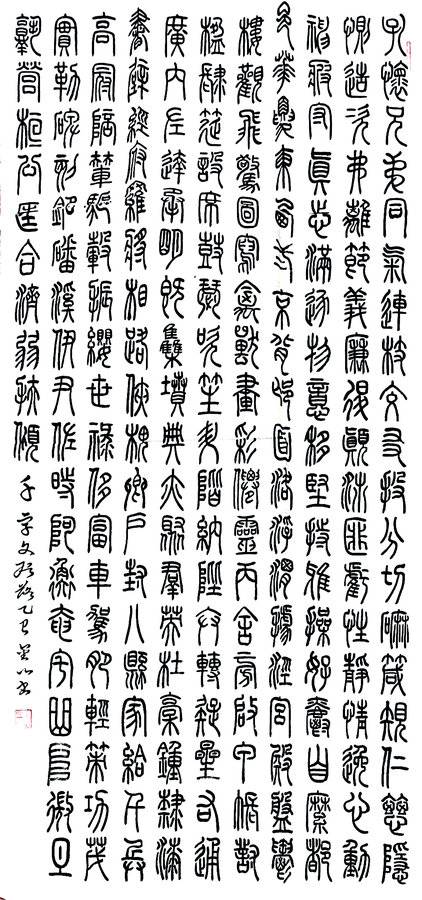 孔懷兄弟同氣連枝交友投分切磨箴規仁慈隱
惻造次弗離節義廉退顛沛匪虧性靜情逸心動
神疲守真志滿逐物意移堅持雅操好爵自縻都
邑華夏東西二京背邙面洛浮渭據涇宮殿盤鬱
樓觀飛驚圖寫禽獸畫彩仙靈丙舍傍啟甲帳對
楹肆筵設席鼓瑟吹笙升階納陛弁轉疑星右通
廣內左達承明既集墳典亦聚羣英杜稾鍾隸漆
書壁經府羅將相路俠槐卿戶封八縣家給千兵
高冠陪輦驅轂振纓世祿侈富車駕肥輕策功茂
實勒碑刻銘磻溪伊尹佐時阿衡奄宅曲阜微旦
孰營桓公匡合濟弱扶傾
千字文 乙巳 書